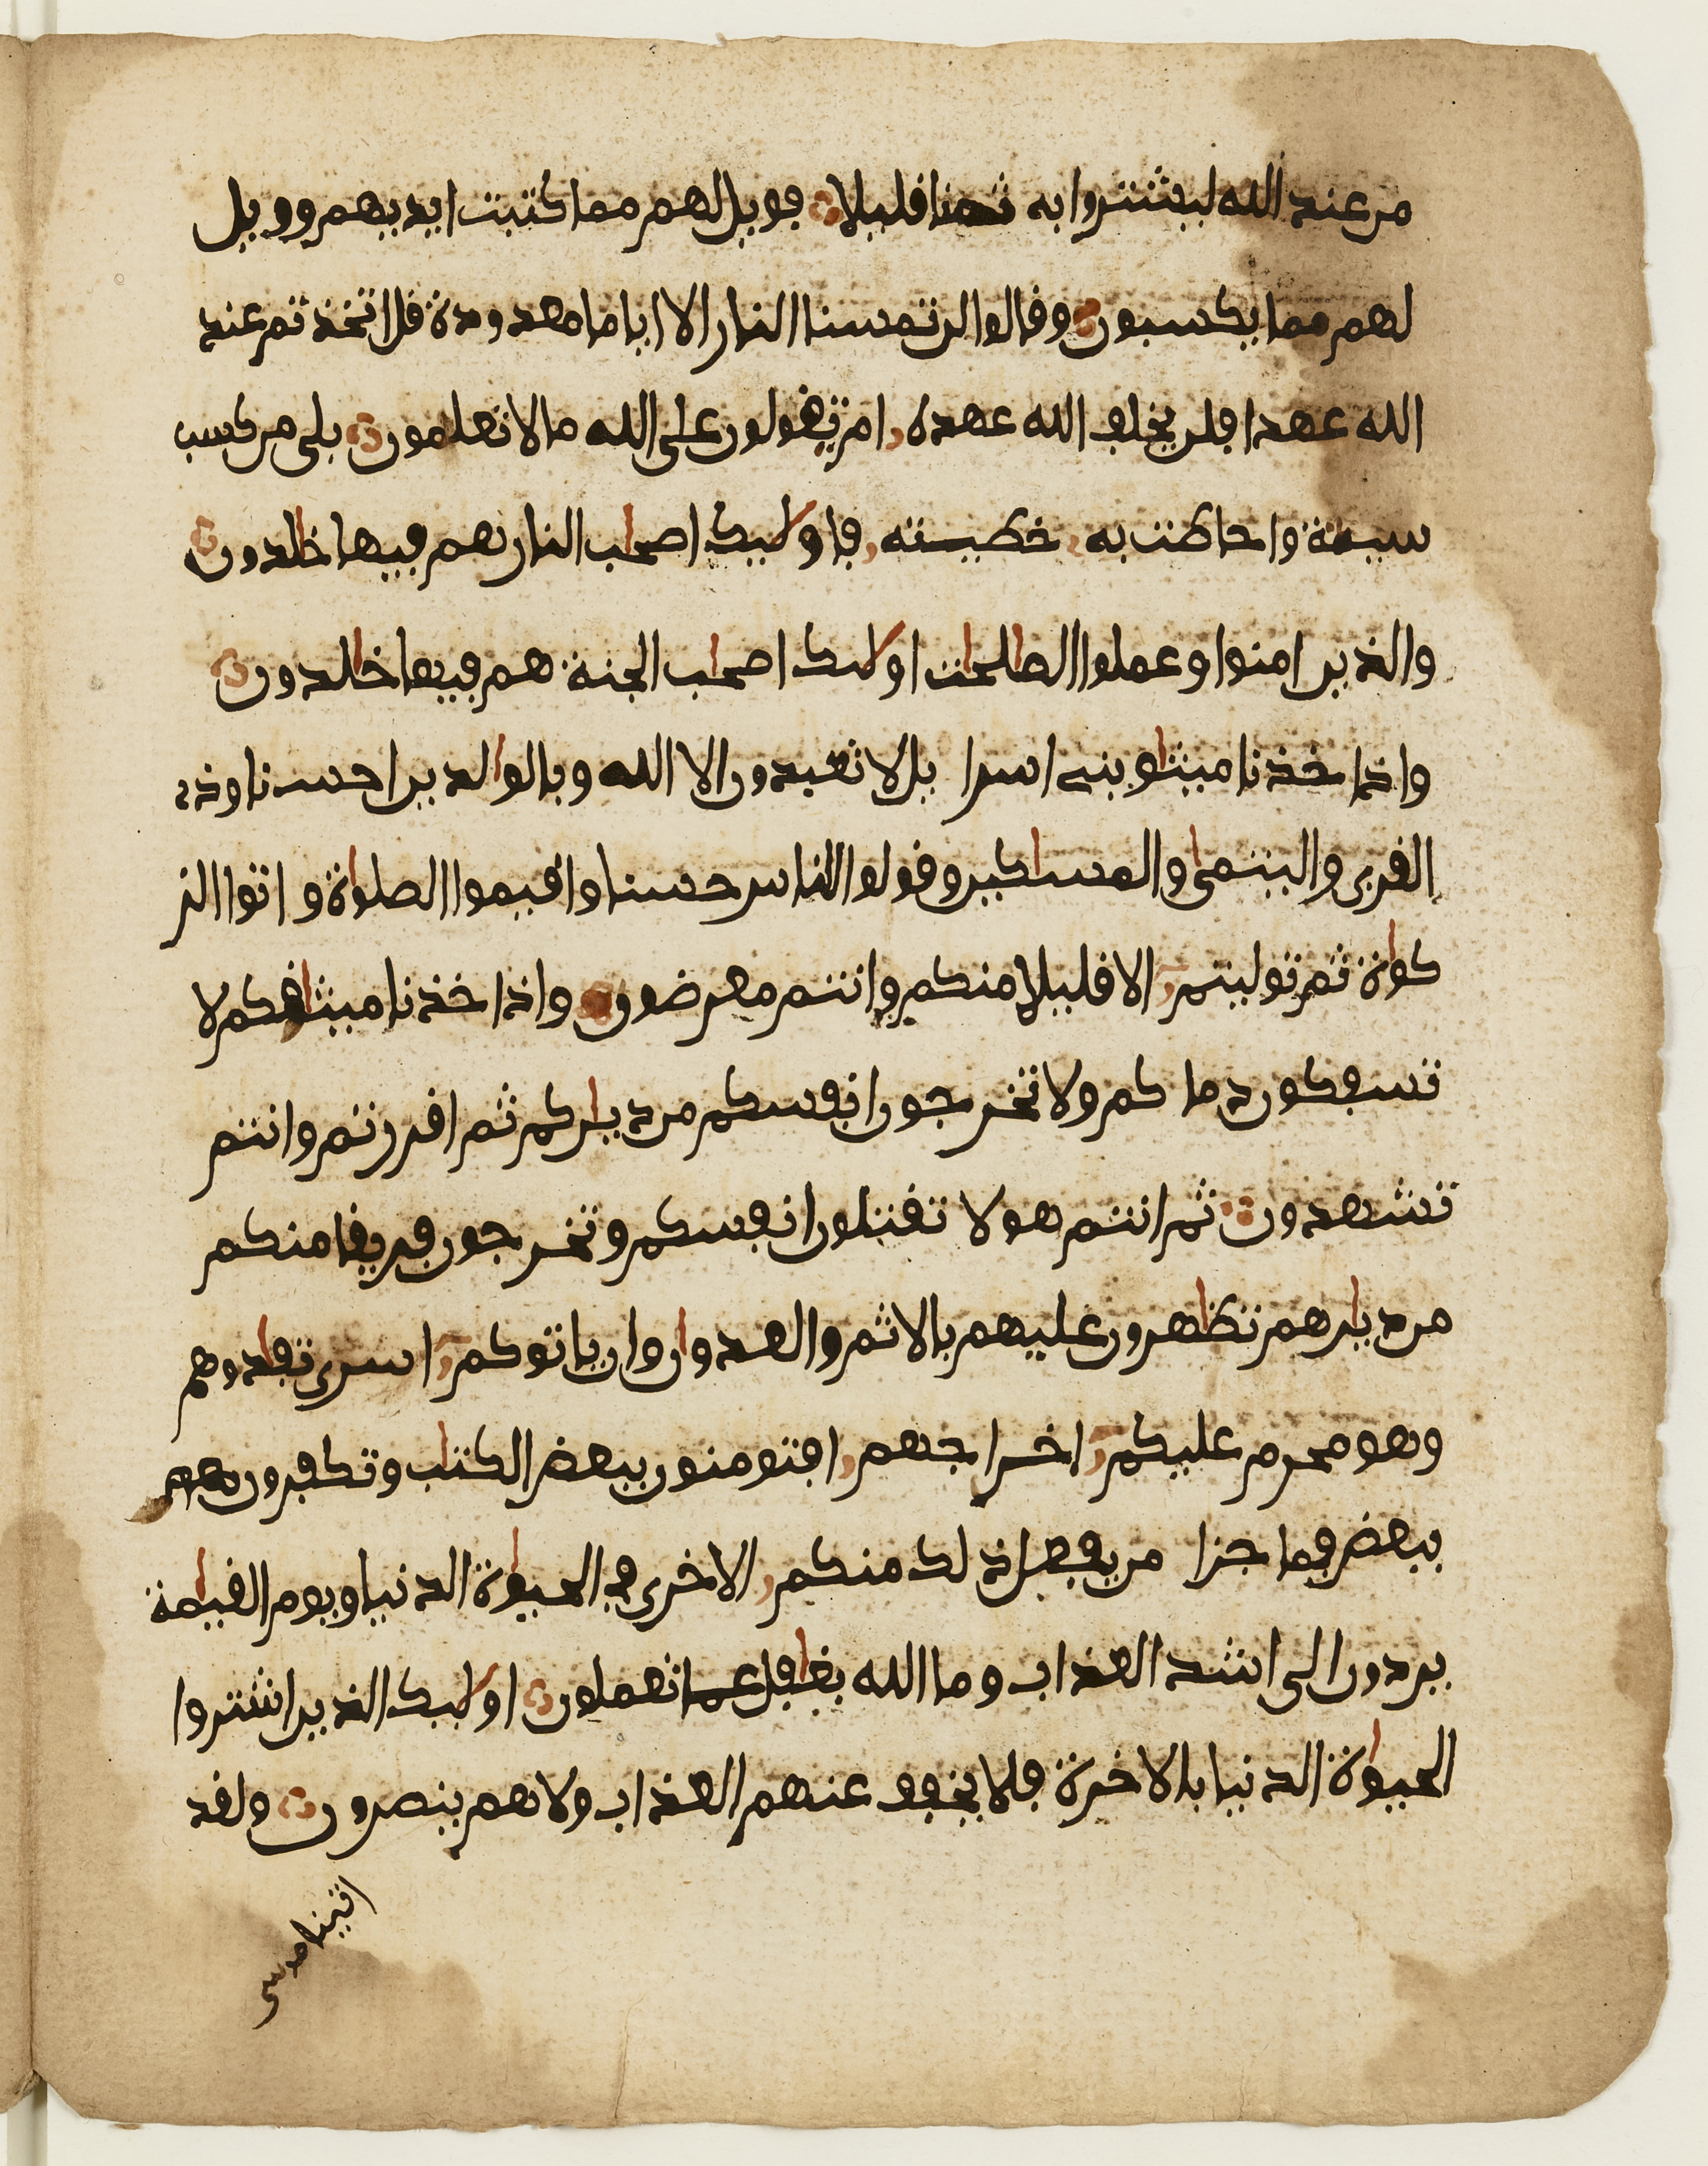 من عند الله ليشتروا به ثمنا فليلا فويل لهم مما كتبت ايديهم وويل
لهم مما يكسبون وفالوا لن تمسنا النار الا اياما معدودة فل اتخذتم عند
الله عهدا فلن يخلف الله عهده ام تفولون على الله ما لا تعلمون بلى من كسب
سيية واحاطت به خطيـته فاولـيك اصحاب النار هم فيها خالدون
والذين امنوا وعملوا الصالحات اولـيك اصحاب الجنة هم فيها خالدون
واذ اخذنا ميثاو بني اسرا يل لا تعبدون الا الله وبالوالدين احسنا وذى
الفربى واليتامى والمساكين وفولوا للناس حسنا وافيموا الصلواة واتوا الز
كواة ثم توليتم الا فليلا منكم وانتم معرضون واذ اخذنا ميثافكم لا
تسفكون دما كم ولا تخرجون انفسكم من دياركم ثم افررتم وانتم
تشهدون ثم انتم هولا تفتلون انفسكم وتخرجون فريفا منكم
من ديارهم تظاهرون عليهم بالاثم والعدوان وان ياتوكم اسرى تفادوهم
وهو محرم عليكم اخراجهم افتومنون ببعض الكتاب وتكفرون
ببعض فما جزا من يفعل ذلك منكم الا خزى في الحيواة الدنيا ويوم الفيامة
يردون الى اشد العذاب وما الله بغافل عما تعملون اولـيك الذين اشتروا
الحيواة الدنيا بالاخرة فلا يخفف عنهم العذاب ولا هم ينصرون ولفد
اتينا موسى